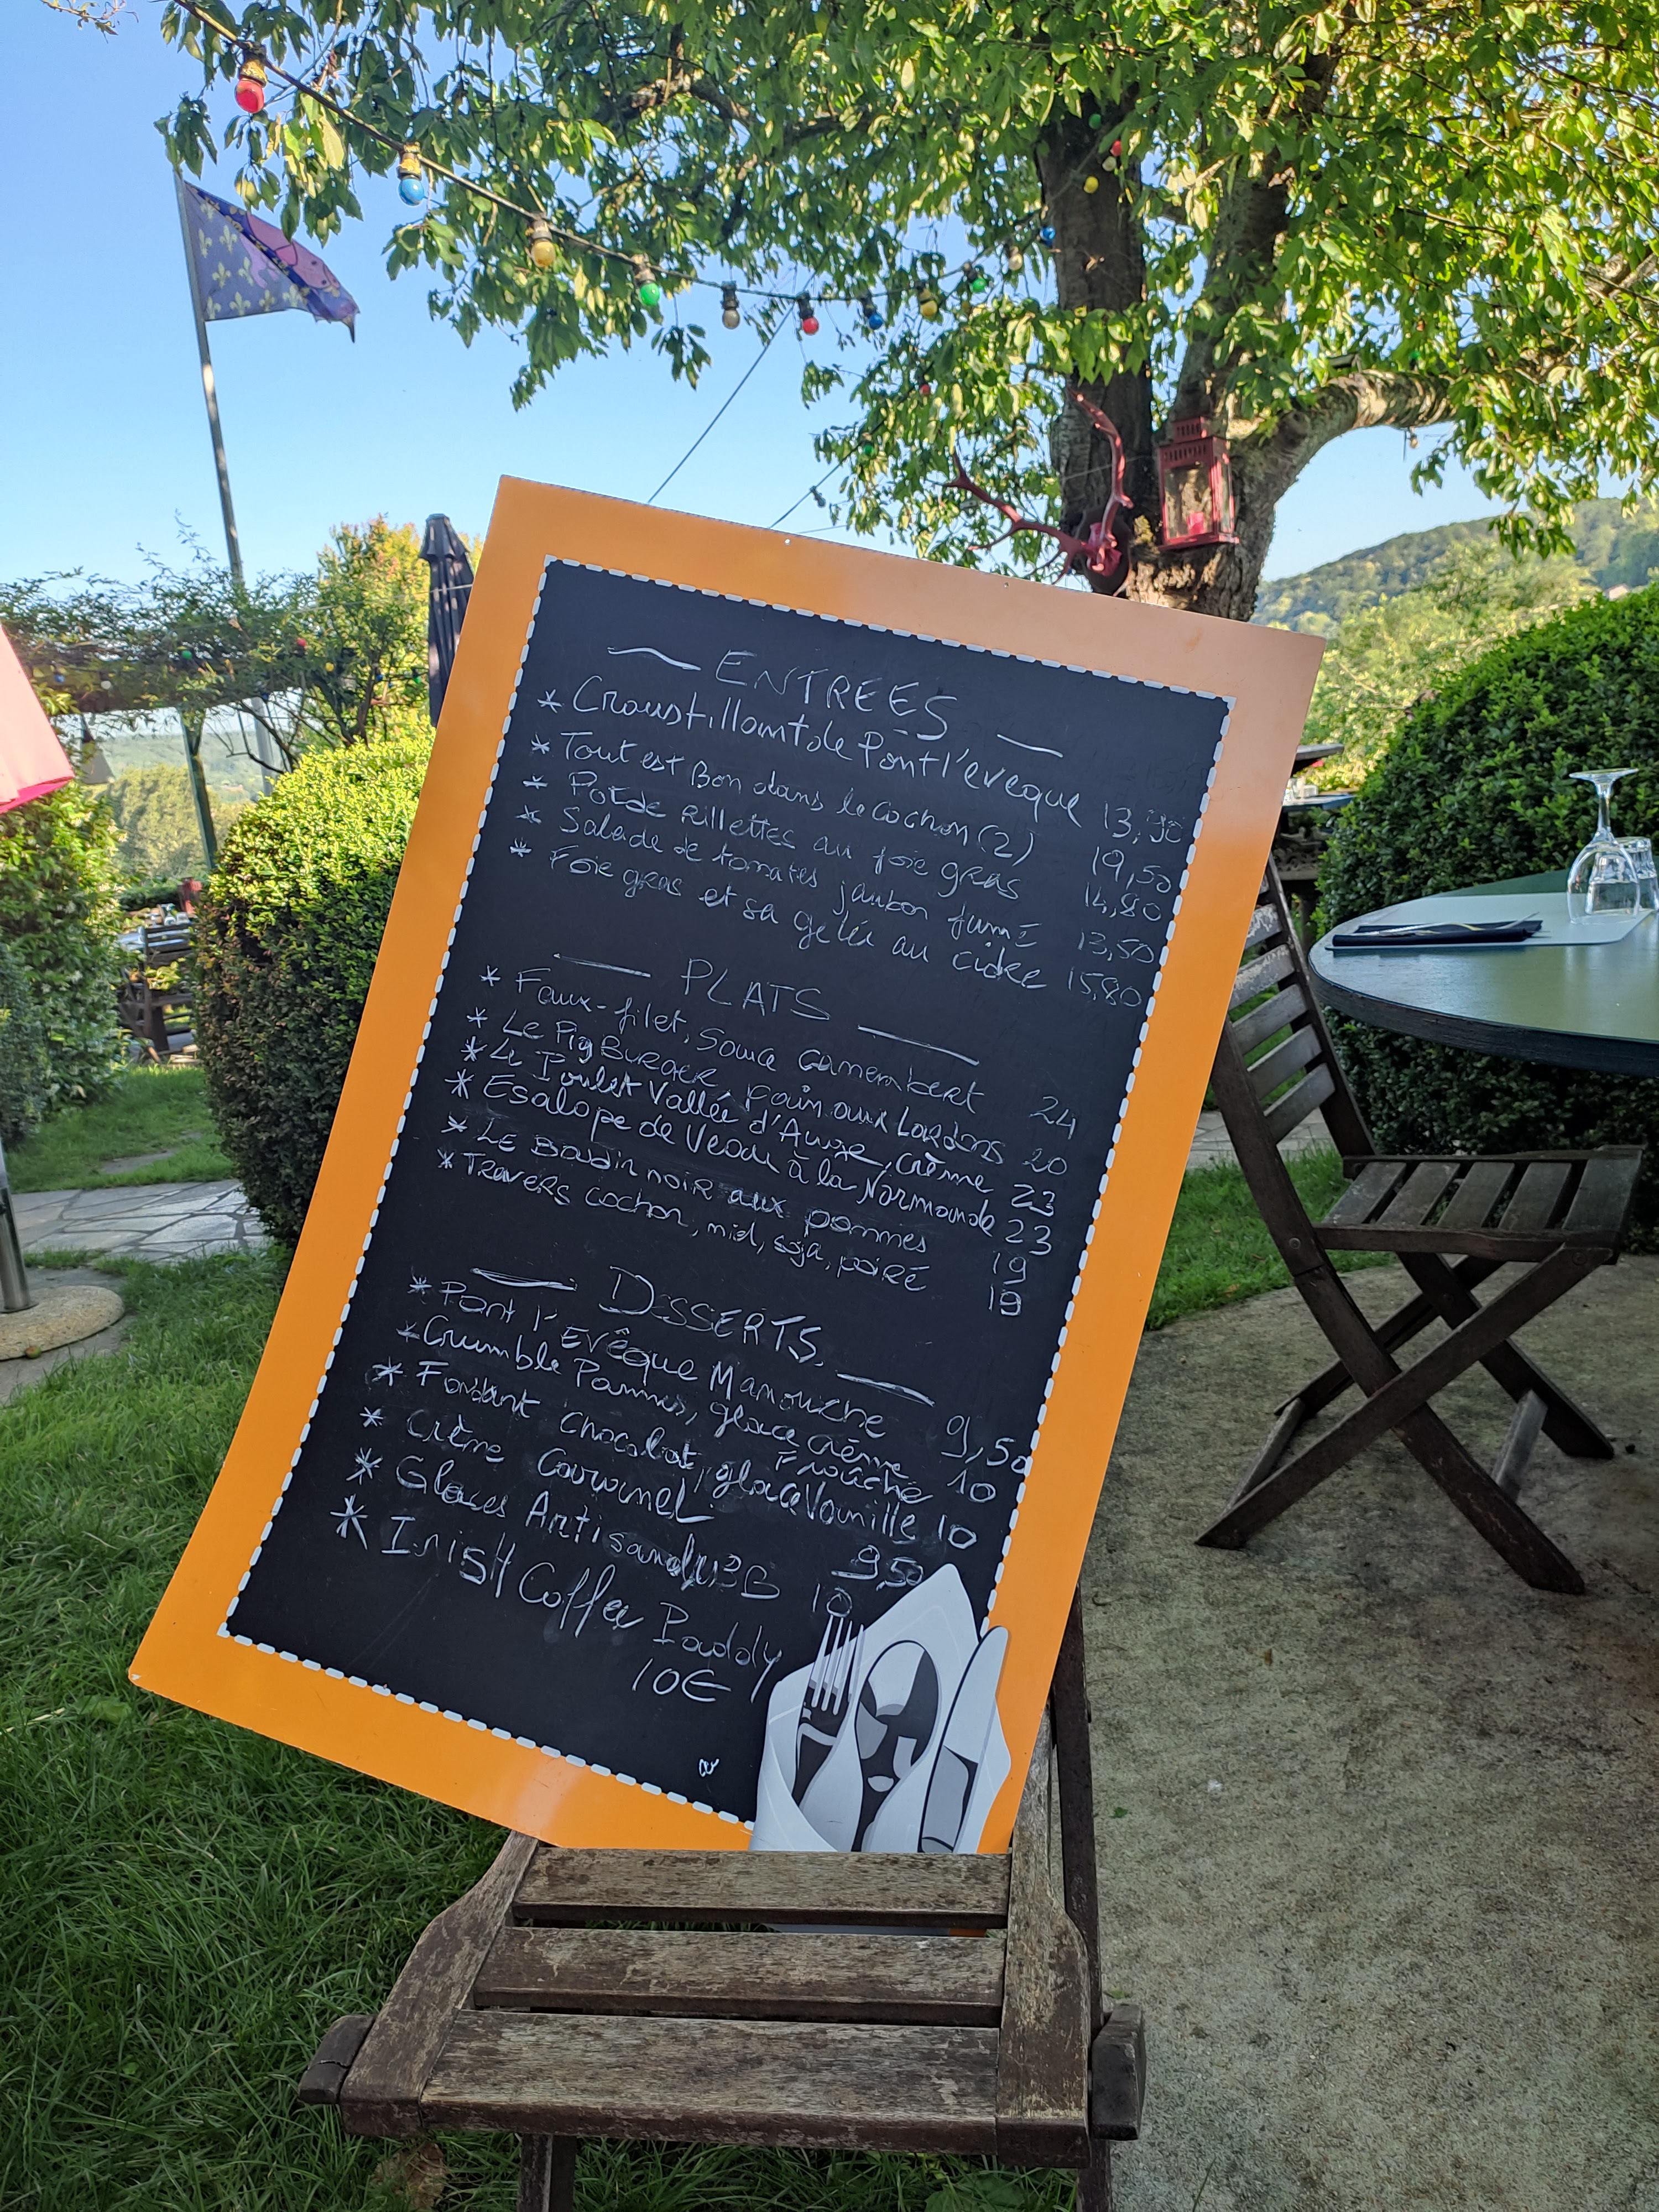 ENTREES
* Croustillant de Pont l'eveque
* Tout est Bon dans le cochon (2) 19,50
* Pot de Rillettes au foie gras 14,80
* Salade de tomates jambon fumé 13,50
* Foie gras et sa gelée au cidre 15,80
PLATS
* Faux-filet, Sauce camembert 24
* Le Pig Burger, pain aux Lardons 20
* Le Poulet Vallée d'Auge, crème 23
* Esalope de Veau à la Normande 23
* Le Boudin noir aux pommes 19
* Travers cochon, miel, soja, poiré 19
DESSERTS
* Pont l'Evêque Manouche 9,50
* Crumble Pommes, glace crème
Fraîche 10
* Fondant chocolat, glace Vanille 10
* Crème Caramel 9,50
* Glaces Artisanales 10
* Irish Coffee Paddy
10€